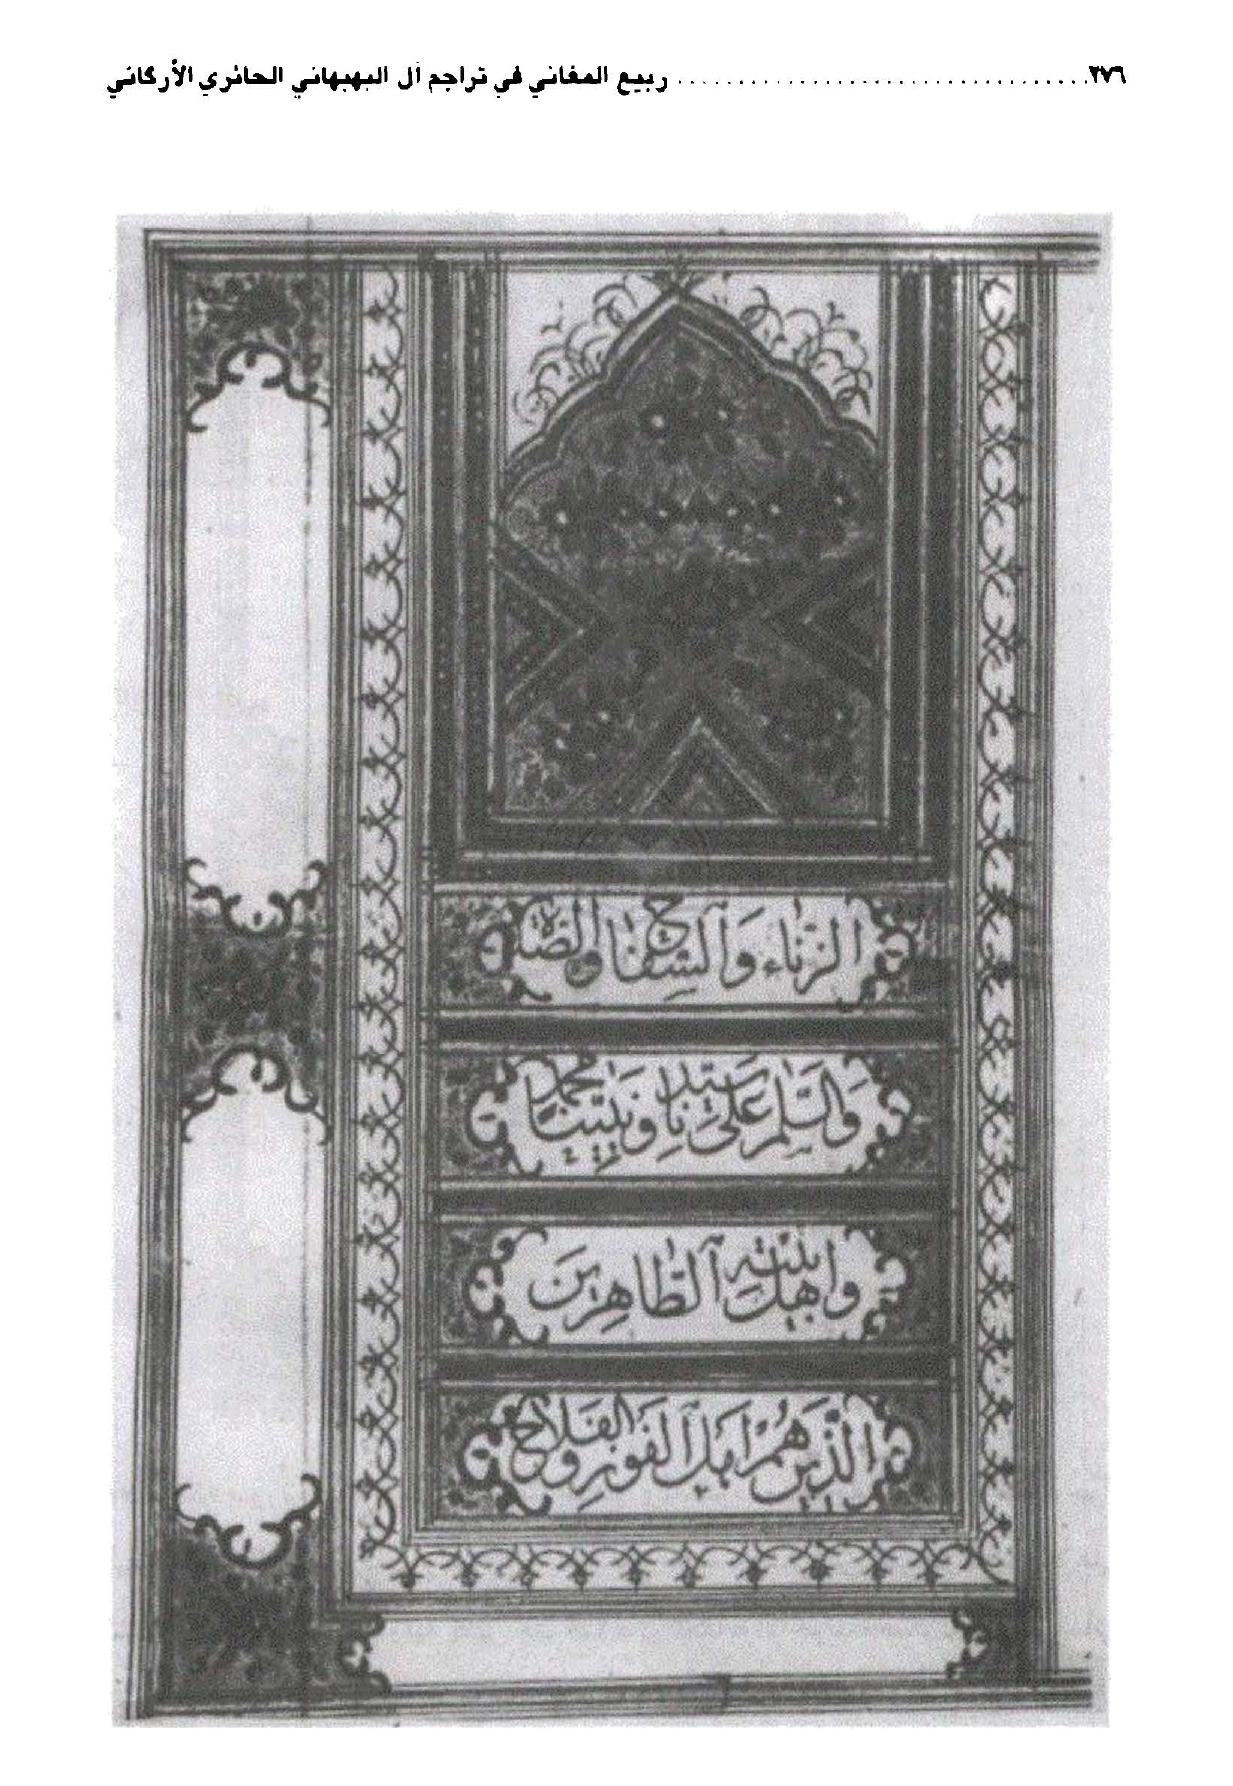 ٢٧٦ ........................................ ربيع المغاني في تراجم آل البهبهاني الحائري الأركاني
الزِّنَاءِ وَالسِّفَاحِ وَالصَّلٰاة
وَالسَّلٰمُ عَلَىٰ سَيِّدِنَا وَنَبِيِّنَا مُحَمَّد
وَاهْلِ بَيْتِهِ الطَّاهِرِينَ
الَّذِينَ هُمْ اَهْلُ الْفَوْزِ وَالْفَلَاحِ